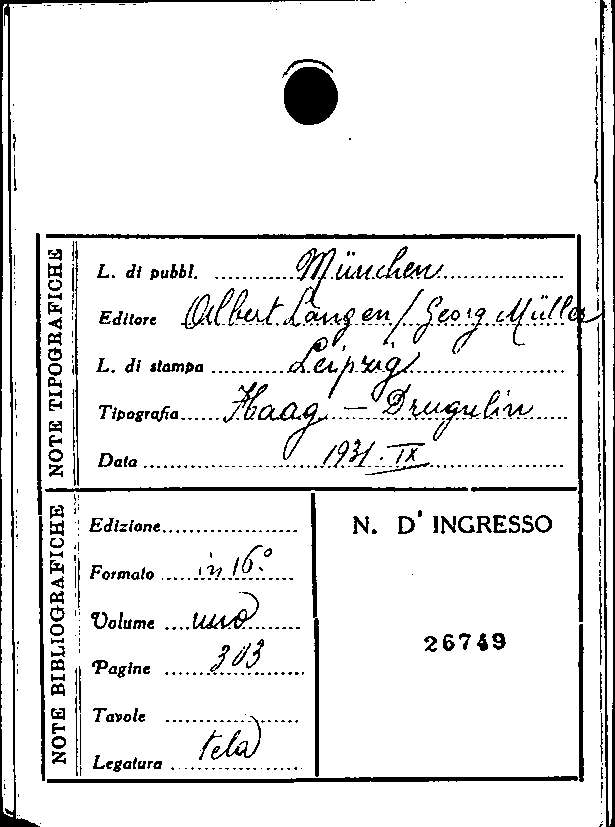 NOTE TIPOGRAFICHE
L. di pubbl. München
Editore Albert Langen / Georg Müller
L. di stampa Leipzig
Tipografia Haag – Drugulin
Data 1931. IX
NOTE BIBLIOGRAFICHE
Edizione
Formato in 16°
Volume uno
Pagine 303
Tavole
Legatura tela
N. D' INGRESSO
26749